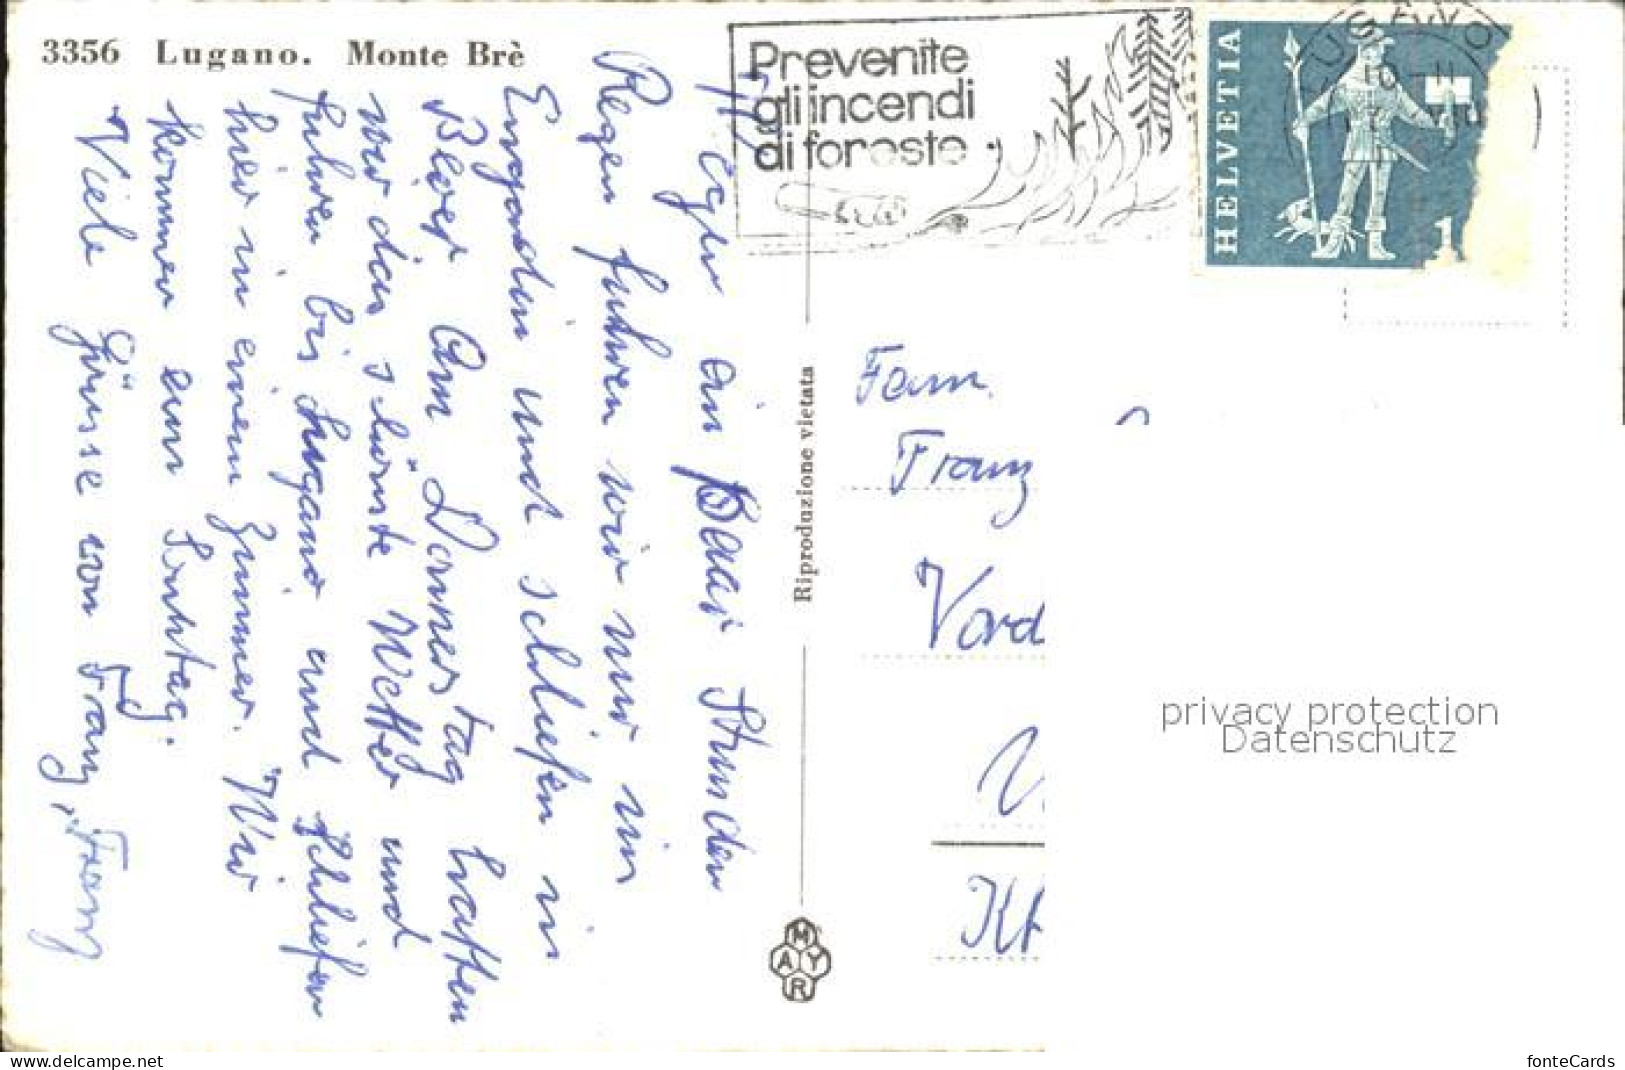 3356 Lugano. Monte Brè
Prevenite
gli incendi
di foreste
HELVETIA
1
Wegen ein Paar Stunden
Regen fuhren wir nur in
Engadin und schliefen in
Bever. Am Donnerstag hatten
wir das schönste Wetter und
fuhren bis Lugano und schliefen
hier in einem Zimmer. Wir
kommen am Sonntag.
Viele Grüsse von Franz, Franz
Riproduzione vietata
MAYR
Fam.
Franz
Vord
Kt
privacy protection
Datenschutz
fonteCards
www.delcampe.net